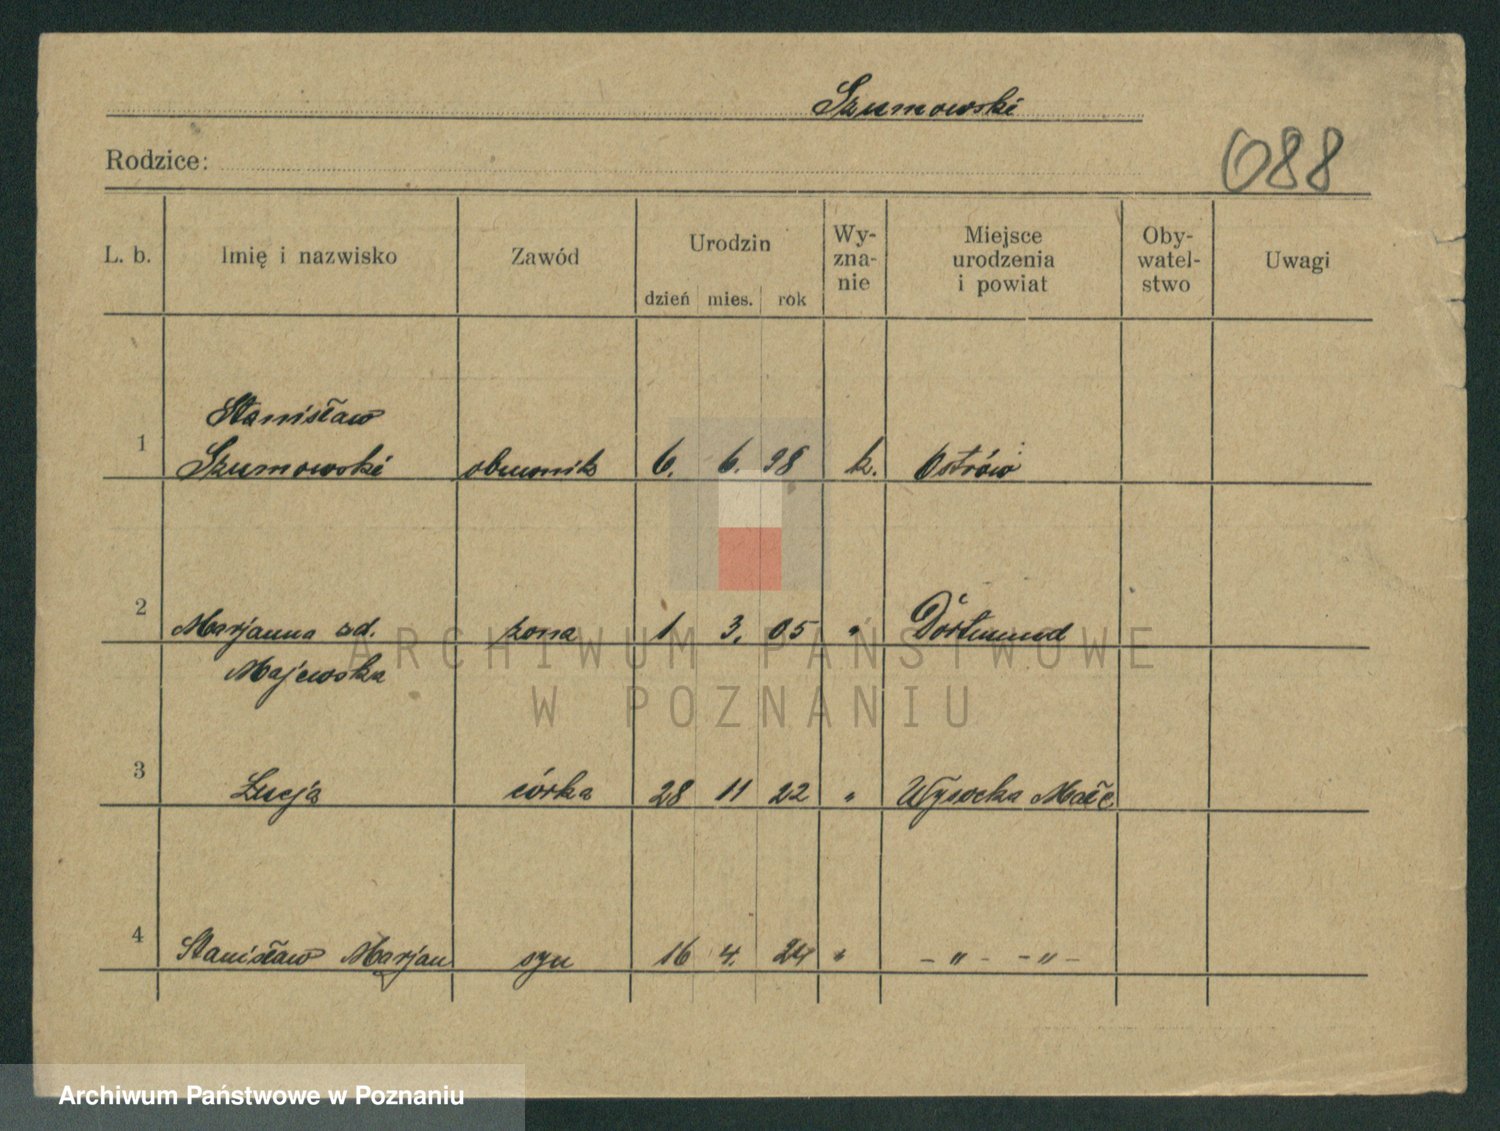 Szumowski
Rodzice:
088
L. b.
Imię i nazwisko
Zawód
Urodzin
dzień mies. rok
Wy-
zna-
nie
Miejsce
urodzenia
i powiat
Oby-
watel-
stwo
Uwagi
Stanisław
1 Szumowski obuwnik 6. 6. 98 k. Ostrów
2 Marjanna zd. żona 1 3. 05 " Dortmund
Majewska
3 Łucja córka 28 11 22 " Wysocka Mał
4 Stanisław Marjan syn 16 4. 24 " - " - - " -
ARCHIWUM PAŃSTWOWE
W POZNANIU
Archiwum Państwowe w Poznaniu